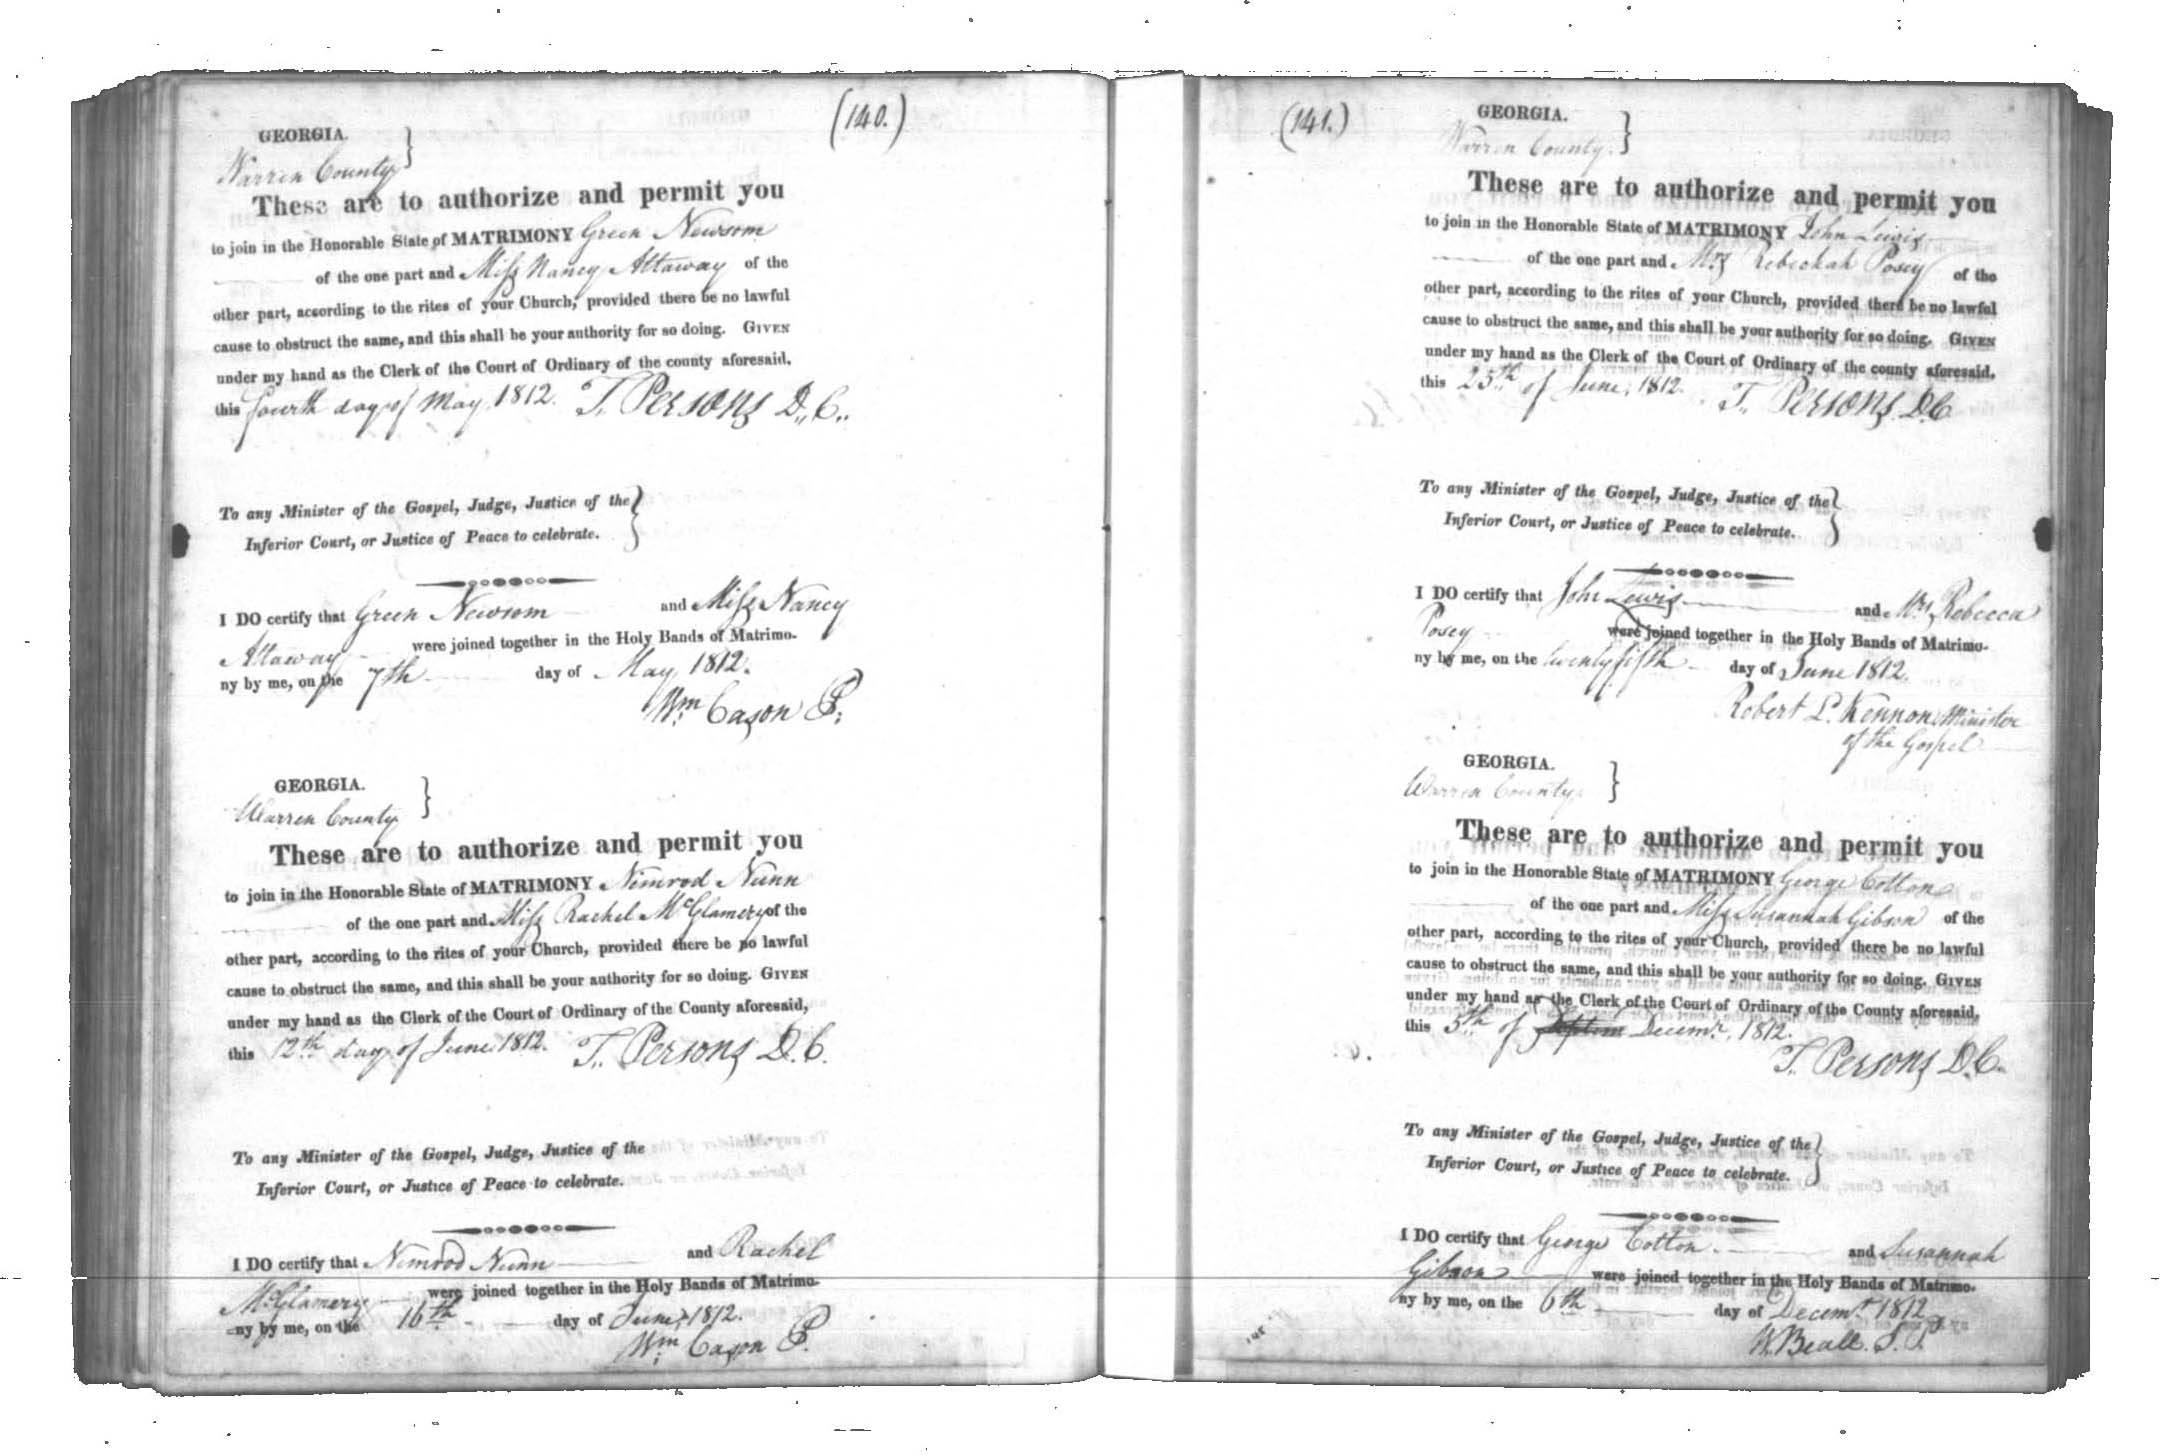 (140.)
GEORGIA.
Warren County }
These are to authorize and permit you
to join in the Honorable State of MATRIMONY Green Newsom
of the one part and Miss Nancy Attaway of the
other part, according to the rites of your Church, provided there be no lawful
cause to obstruct the same, and this shall be your authority for so doing. GIVEN
under my hand as the Clerk of the Court of Ordinary of the county aforesaid,
this fourth day of May, 1812. T. Persons D.C.
To any Minister of the Gospel, Judge, Justice of the }
Inferior Court, or Justice of Peace to celebrate.
I DO certify that Green Newsom and Miss Nancy
Attaway were joined together in the Holy Bands of Matrimo-
ny by me, on the 7th day of May, 1812.
Wm Cason
GEORGIA.
Warren County }
These are to authorize and permit you
to join in the Honorable State of MATRIMONY Nimrod Nunn
of the one part and Miss Rachel McGlamery of the
other part, according to the rites of your Church, provided there be no lawful
cause to obstruct the same, and this shall be your authority for so doing. GIVEN
under my hand as the Clerk of the Court of Ordinary of the County aforesaid,
this 12th day of June 1812. T. Persons D.C.
To any Minister of the Gospel, Judge, Justice of the
Inferior Court, or Justice of Peace to celebrate.
I DO certify that Nimrod Nunn and Rachel
McGlamery were joined together in the Holy Bands of Matrimo-
ny by me, on the 16th day of June, 1812.
Wm Cason
(141.)
GEORGIA.
Warren County. }
These are to authorize and permit you
to join in the Honorable State of MATRIMONY John Lewis
of the one part and Mrs Rebeckah Posey of the
other part, according to the rites of your Church, provided there be no lawful
cause to obstruct the same, and this shall be your authority for so doing. GIVEN
under my hand as the Clerk of the Court of Ordinary of the county aforesaid,
this 25th of June, 1812. T. Persons D.C
To any Minister of the Gospel, Judge, Justice of the }
Inferior Court, or Justice of Peace to celebrate.
I DO certify that John Lewis and Mrs Rebecca
Posey were joined together in the Holy Bands of Matrimo-
ny by me, on the twenty fifth day of June 1812.
Robert L. Kennon Minister
of the Gospel
GEORGIA.
Warren County. }
These are to authorize and permit you
to join in the Honorable State of MATRIMONY George Cotton
of the one part and Miss Susannah Gibson of the
other part, according to the rites of your Church, provided there be no lawful
cause to obstruct the same, and this shall be your authority for so doing. GIVEN
under my hand as the Clerk of the Court of Ordinary of the County aforesaid,
this 5th of Septem Decemr. 1812.
T. Persons D.C.
To any Minister of the Gospel, Judge, Justice of the }
Inferior Court, or Justice of Peace to celebrate.
I DO certify that George Cotton and Susannah
Gibson were joined together in the Holy Bands of Matrimo-
ny by me, on the 6th day of Decemr 1812
W. Beall. J. P.